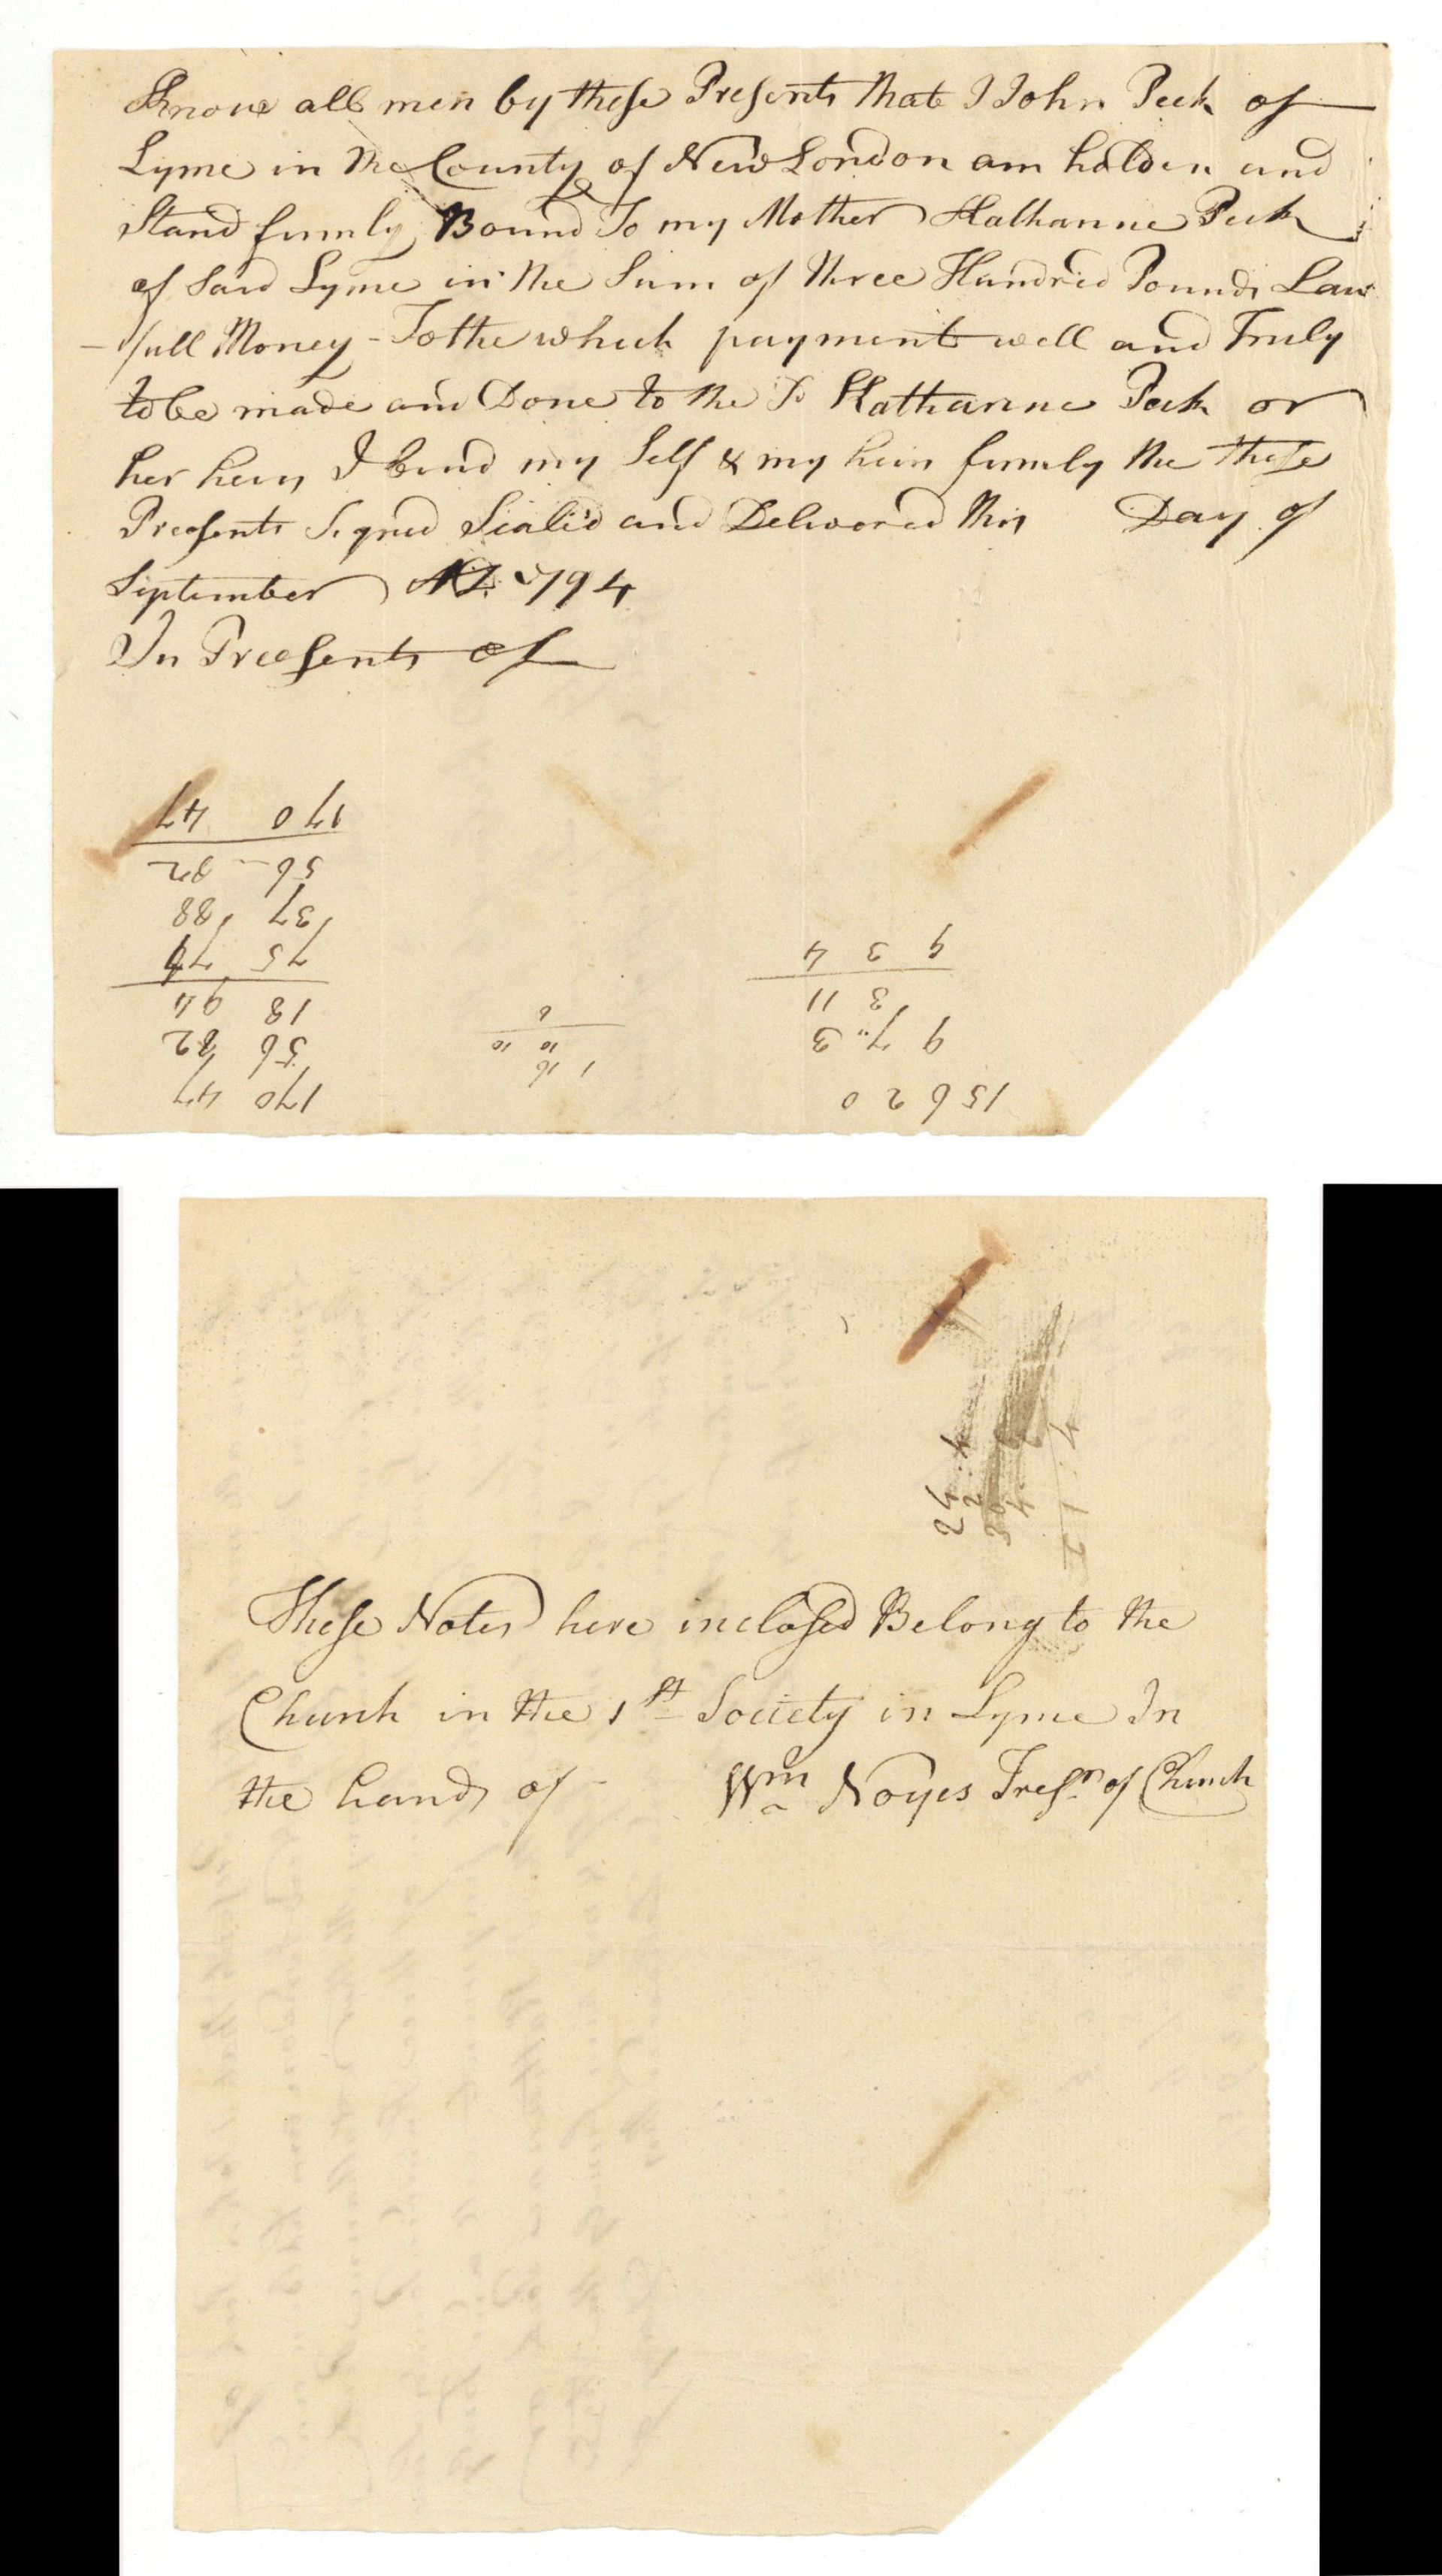 Know all men by these Presents that I John Peck of
Lyme in the County of New London am holden and
Stand firmly Bound To my Mother Kathanne Peck
of Said Lyme in the Sum of three Hundred Pounds Law
-full Money - To the which payment well and Truly
to be made and Done to the Sd Katharine Peck or
her heirs I bind my Self & my heirs firmly the these
Preasents Signed Sealed and Delivered this Day of
September AD 1794
In Preasents of
170 47
56 82
18 94
75 74
37 88
56 - 82
170 47
1 16
10 10
6
15 6 2 0
9 7" 3
3 11
9 3 4
24 . 4
4
2 1 . 4
These Notes here inclosed Belong to the
Church in the 1st Society in Lyme In
the hands of - Wm Noyes Tresr of Church